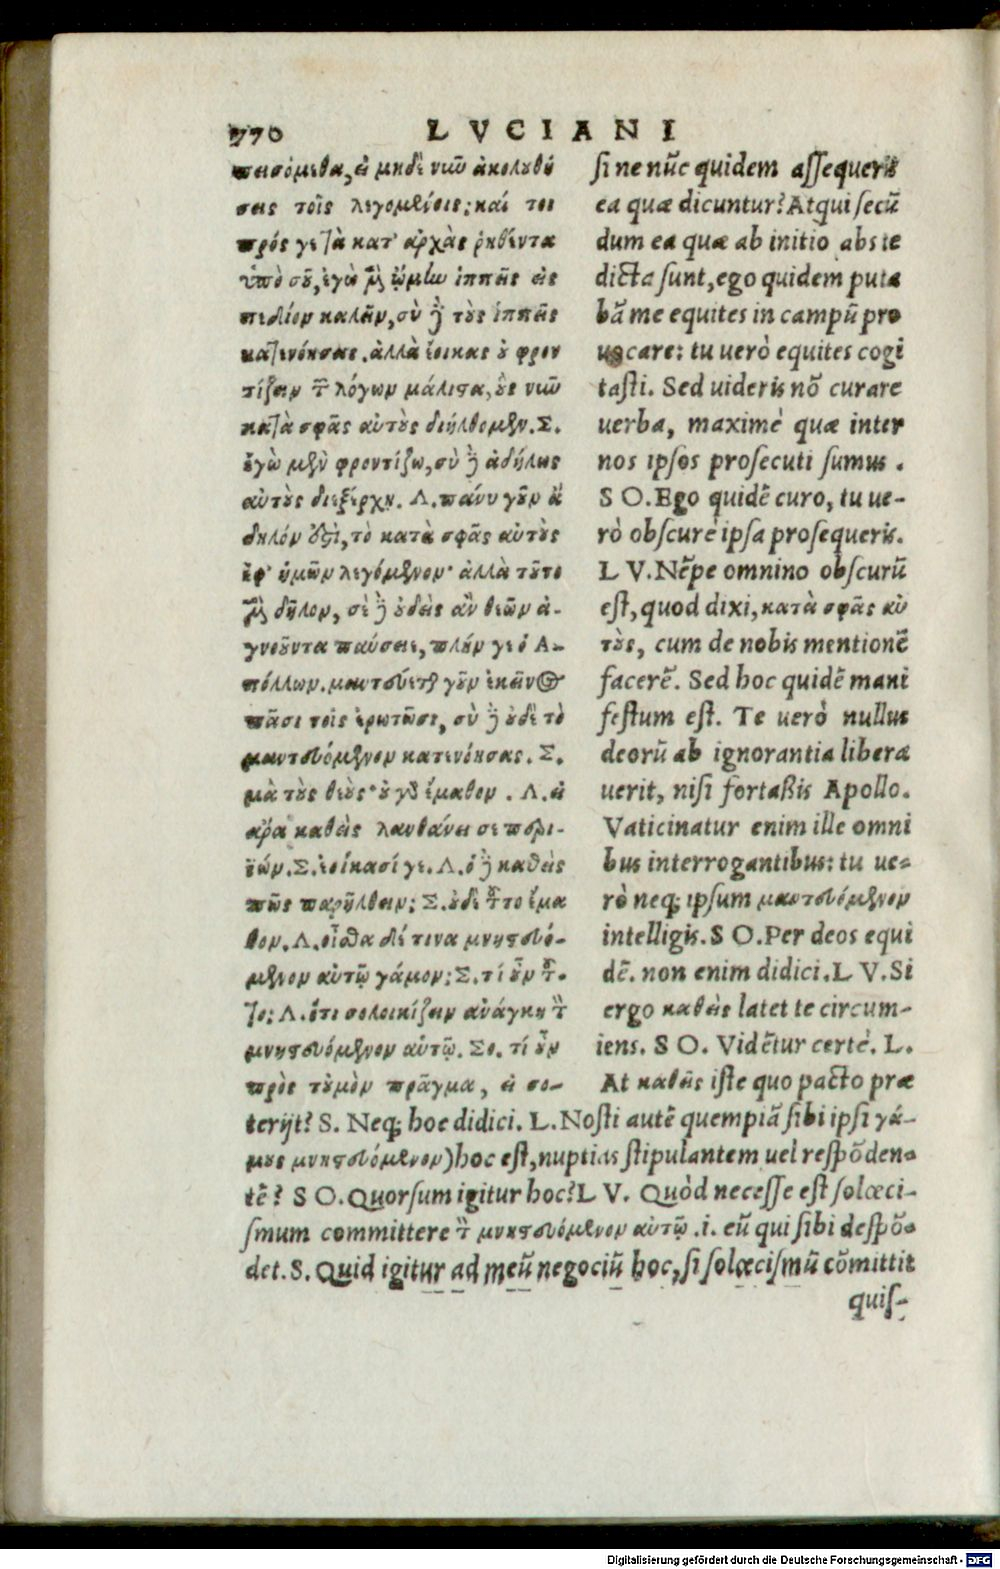 770 LVCIANI
πεισόμεθα, εἰ μηδὲ νῦν ἀκολουθή
σεις τοῖς λεγομένοις; καί τοι
πρός γε τὰ κατ' ἀρχὰς ῥηθέντα
ὑπὸ σοῦ, ἐγὼ μὲν ᾤμην ἱππῆς εἰς
πεδίον καλεῖν, σὺ δὲ τοὺς ἱππῆς
κατενόησας. ἀλλὰ ἔοικας οὐ φρον
τίζειν τῶν λόγων μάλιστα, οὓς νῦν
κατὰ σφᾶς αὐτοὺς διήλθομεν. Σ.
ἐγὼ μὲν φροντίζω, σὺ δὲ ἀδήλως
αὐτοὺς διεξέρχῃ. Λ. πάνυ γοῦν ἄ
δηλόν ἐστι, τὸ κατὰ σφᾶς αὐτοὺς
ἐφ' ὑμῶν λεγόμενον· ἀλλὰ τοῦτο
μὲν δῆλον, σὲ δὲ οὐδεὶς ἂν θεῶν ἀ-
γνοοῦντα παύσειε, πλήν γε ὁ Ἀ-
πόλλων. μαντεύεται γοῦν ἐκεῖνος
πᾶσι τοῖς ἐρωτῶσι, σὺ δὲ οὐδὲ τὸ
μαντευόμενον κατενόησας. Σ.
μὰ τοὺς θεοὺς· οὐ γὰρ ἔμαθον. Λ. εἰ
ἄρα καθεὶς λανθάνει σε περι-
ϊών. Σ. ἐοίκασί γε. Λ. ὁ δὲ καθεὶς
πῶς παρῆλθεν; Σ. οὐδὲ τοῦτο ἔμα
θον. Λ. οἶσθα δέ τινα μνηστευό-
μενον αὐτῷ γάμον; Σ. τί οὖν τοῦ-
το; Λ. ὅτι σολοικίζειν ἀνάγκη τὸν
μνηστευόμενον αὐτῷ. Σο. τί οὖν
πρὸς τοὐμὸν πρᾶγμα, εἰ σο-
si ne nūc quidem assequeris
ea quæ dicuntur? Atqui secū
dum ea quæ ab initio abs te
dicta sunt, ego quidem puta
bā me equites in campū pro
uocare: tu uerò equites cogi
tasti. Sed uideris nō curare
uerba, maximè quæ inter
nos ipsos prosecuti sumus.
S O. Ego quidē curo, tu ue-
rò obscurè ipsa prosequeris.
L V. Nēpe omnino obscurū
est, quod dixi, κατὰ σφᾶς αὐ
τοὺς, cum de nobis mentionē
facerē. Sed hoc quidē mani
festum est. Te uerò nullus
deorū ab ignorantia libera
uerit, nisi fortaßis Apollo.
Vaticinatur enim ille omni
bus interrogantibus: tu ue-
rò neq; ipsum μαντευόμενον
intelligis. S O. Per deos equi
dē. non enim didici. L V. Si
ergo καθεὶς latet te circum-
iens. S O. Vidētur certè. L.
At καθεὶς iste quo pacto præ
terijt? S. Neq; hoc didici. L. Nosti autē quempiā sibi ipsi γά-
μους μνηστευόμενον) hoc est, nuptias stipulantem uel respōden-
tē? S O. Quorsum igitur hoc? L V. Quòd necesse est solœci-
smum committere τὸν μνηστευόμενον αὐτῷ .i. eū qui sibi despō-
det. S. Quid igitur ad meū negociū hoc, si solœcismū cōmittit
quis-
Digitalisierung gefördert durch die Deutsche Forschungsgemeinschaft - DFG